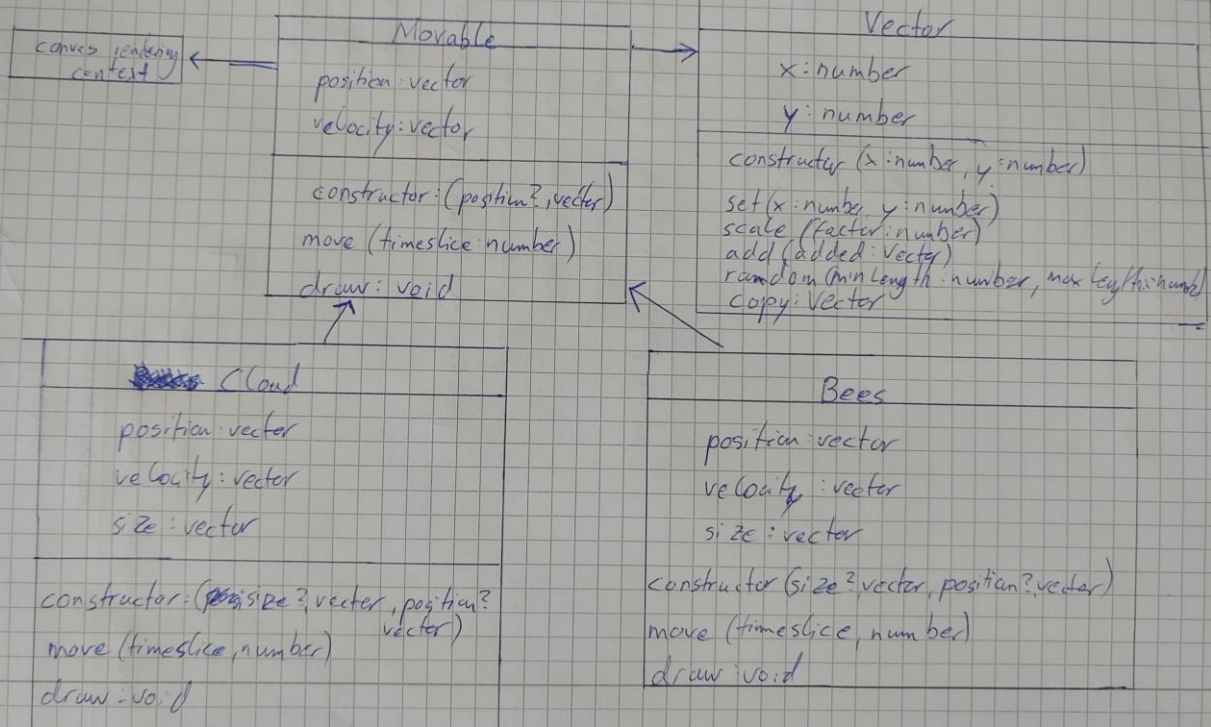 canvas rendering
context
Movable
position: vector
velocity: vector
constructor: (position?, vector)
move (timeslice: number)
draw: void
Vector
x: number
y: number
constructor (x: number, y: number)
set (x: number, y: number)
scale (factor: number)
add (added: Vector)
random (minLength: number, maxLength: numb)
copy: Vector
Cloud
position: vector
velocity: vector
size: vector
constructor: (size?, vector, position?
vector)
move (timeslice, number)
draw: void
Bees
position: vector
velocity: vector
size: vector
constructor (size? vector, position?, vector)
move (timeslice, number)
draw: void